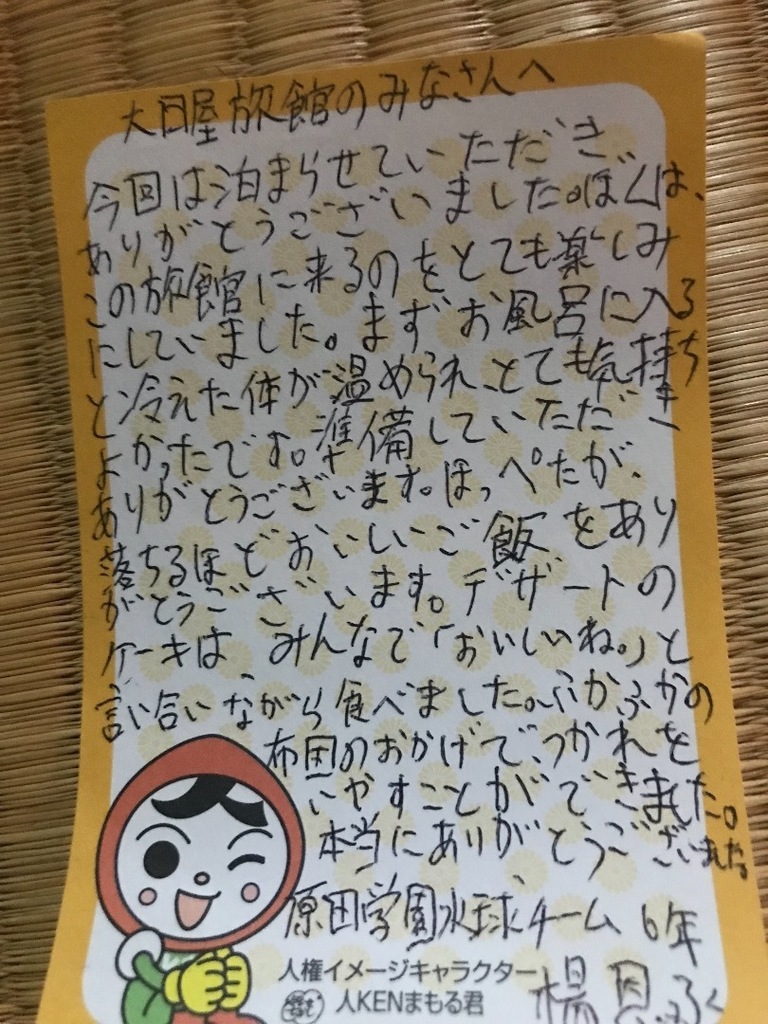 大日屋旅館のみなさんへ
今回は泊まらせていただき
ありがとうございました。ぼくは、
この旅館に来るのをとても楽しみ
にしていました。まずお風呂に入る
と冷えた体が温められ、とても気持ち
よかったです。準備していただき
ありがとうございます。ほっぺたが、
落ちるほどおいしいご飯をあり
がとうございます。デザートの
ケーキは、みんなで「おいしいね。」と
言い合いながら食べました。ふかふかの
布団のおかげで、つかれを
いやすことができました。
本当にありがとうござい
原田学園水球チーム 6年
人権イメージキャラクター
人KENまもる君
楊